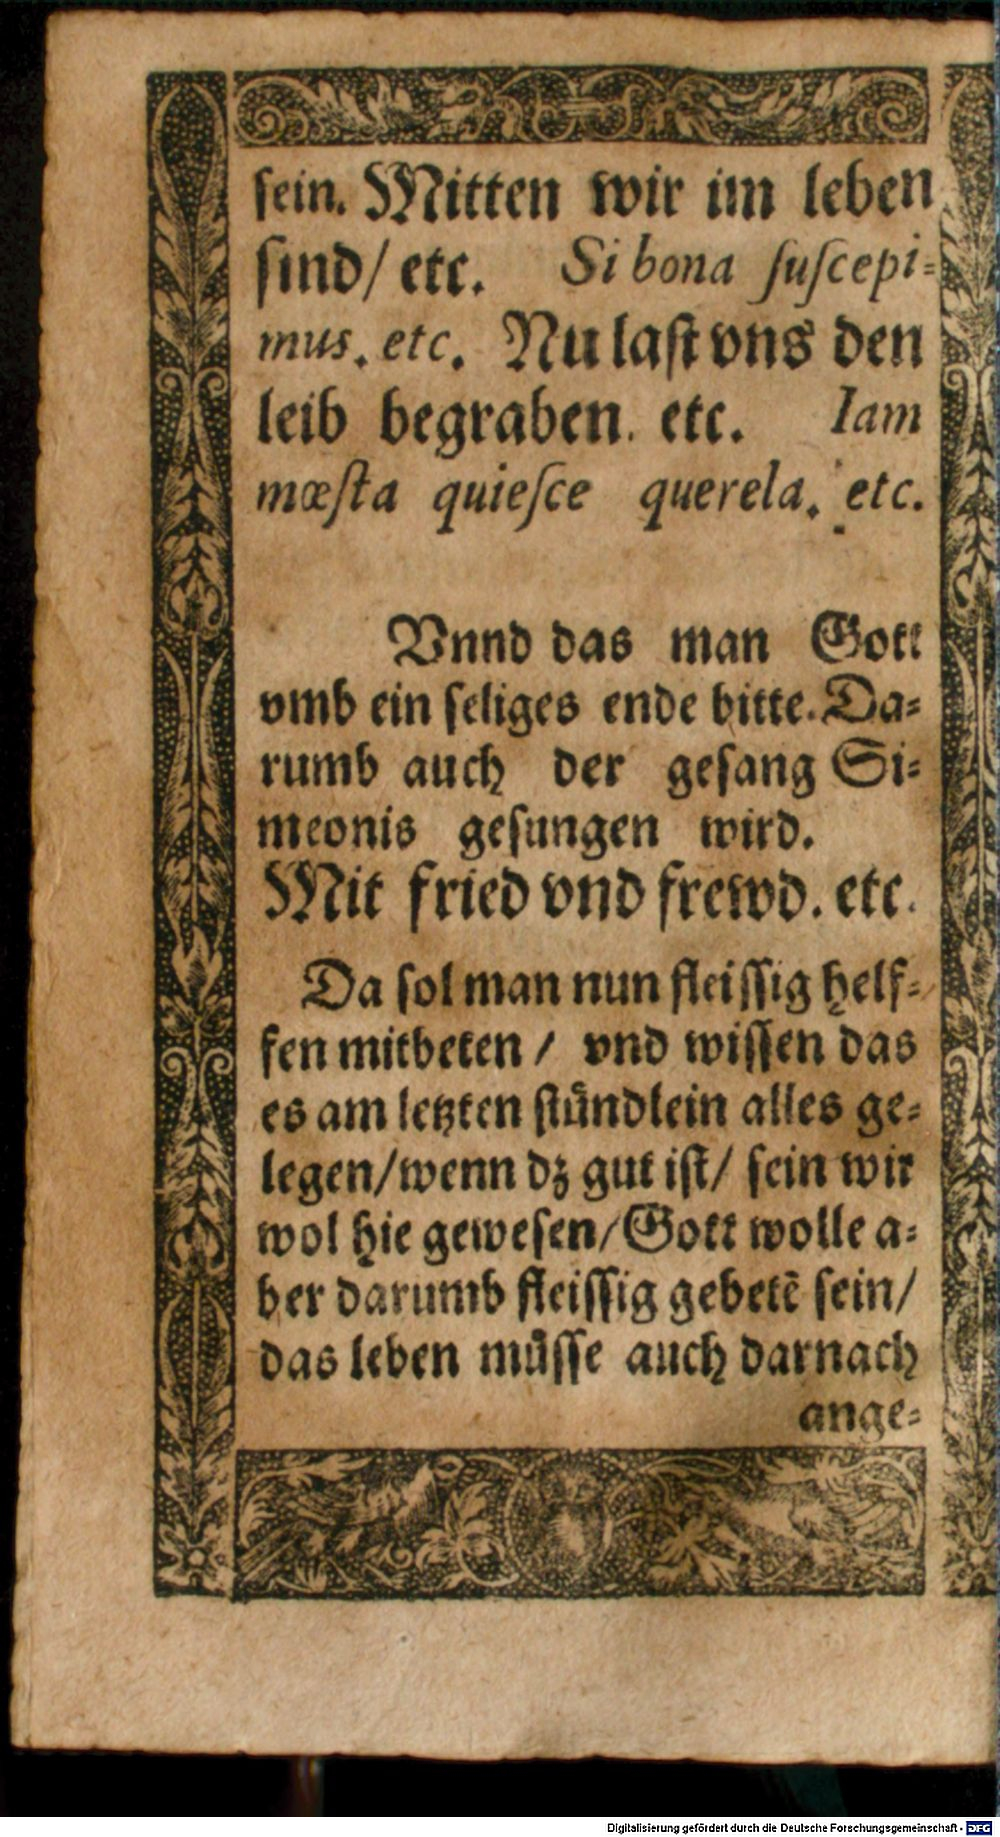 sein. Mitten wir im leben
sind/ etc. Si bona ſuſcepi-
mus. etc. Nu laſt vns den
leib begraben. etc. Iam
mœſta quieſce querela. etc.
Vnnd das man Gott
vmb ein ſeliges ende bitte. Da-
rumb auch der geſang Si-
meonis geſungen wird.
Mit fried vnd frewd. etc.
Da ſol man nun fleiſſig helf-
fen mitbeten / vnd wiſſen das
es am letzten ſtuͤndlein alles ge-
legen/ wenn dz gut iſt/ ſein wir
wol hie geweſen/ Gott wolle a-
ber darumb fleiſſig gebetē ſein/
das leben muͤſſe auch darnach
ange-
Digitalisierung gefördert durch die Deutsche Forschungsgemeinschaft - DFG